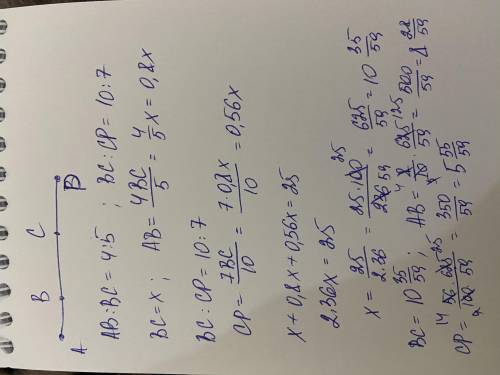 A B C
AB:BC=4:5 ; BC:CP=10:7
BC=x; AB=4BC/5=4/5x=0,8x
BC:CP=10:7
CP=7BC/10=7·0,8x/10=0,56x
x+0,8x+0,56x=25
2,36x=25
x=25/2.36=25·100 25/236 59=625/59=10 35/59
BC=10 35/59; AB=4 8/10·625 125/59=500/59=8 28/59
CP=14 56·625 25/100·59=350/59=5 55/59